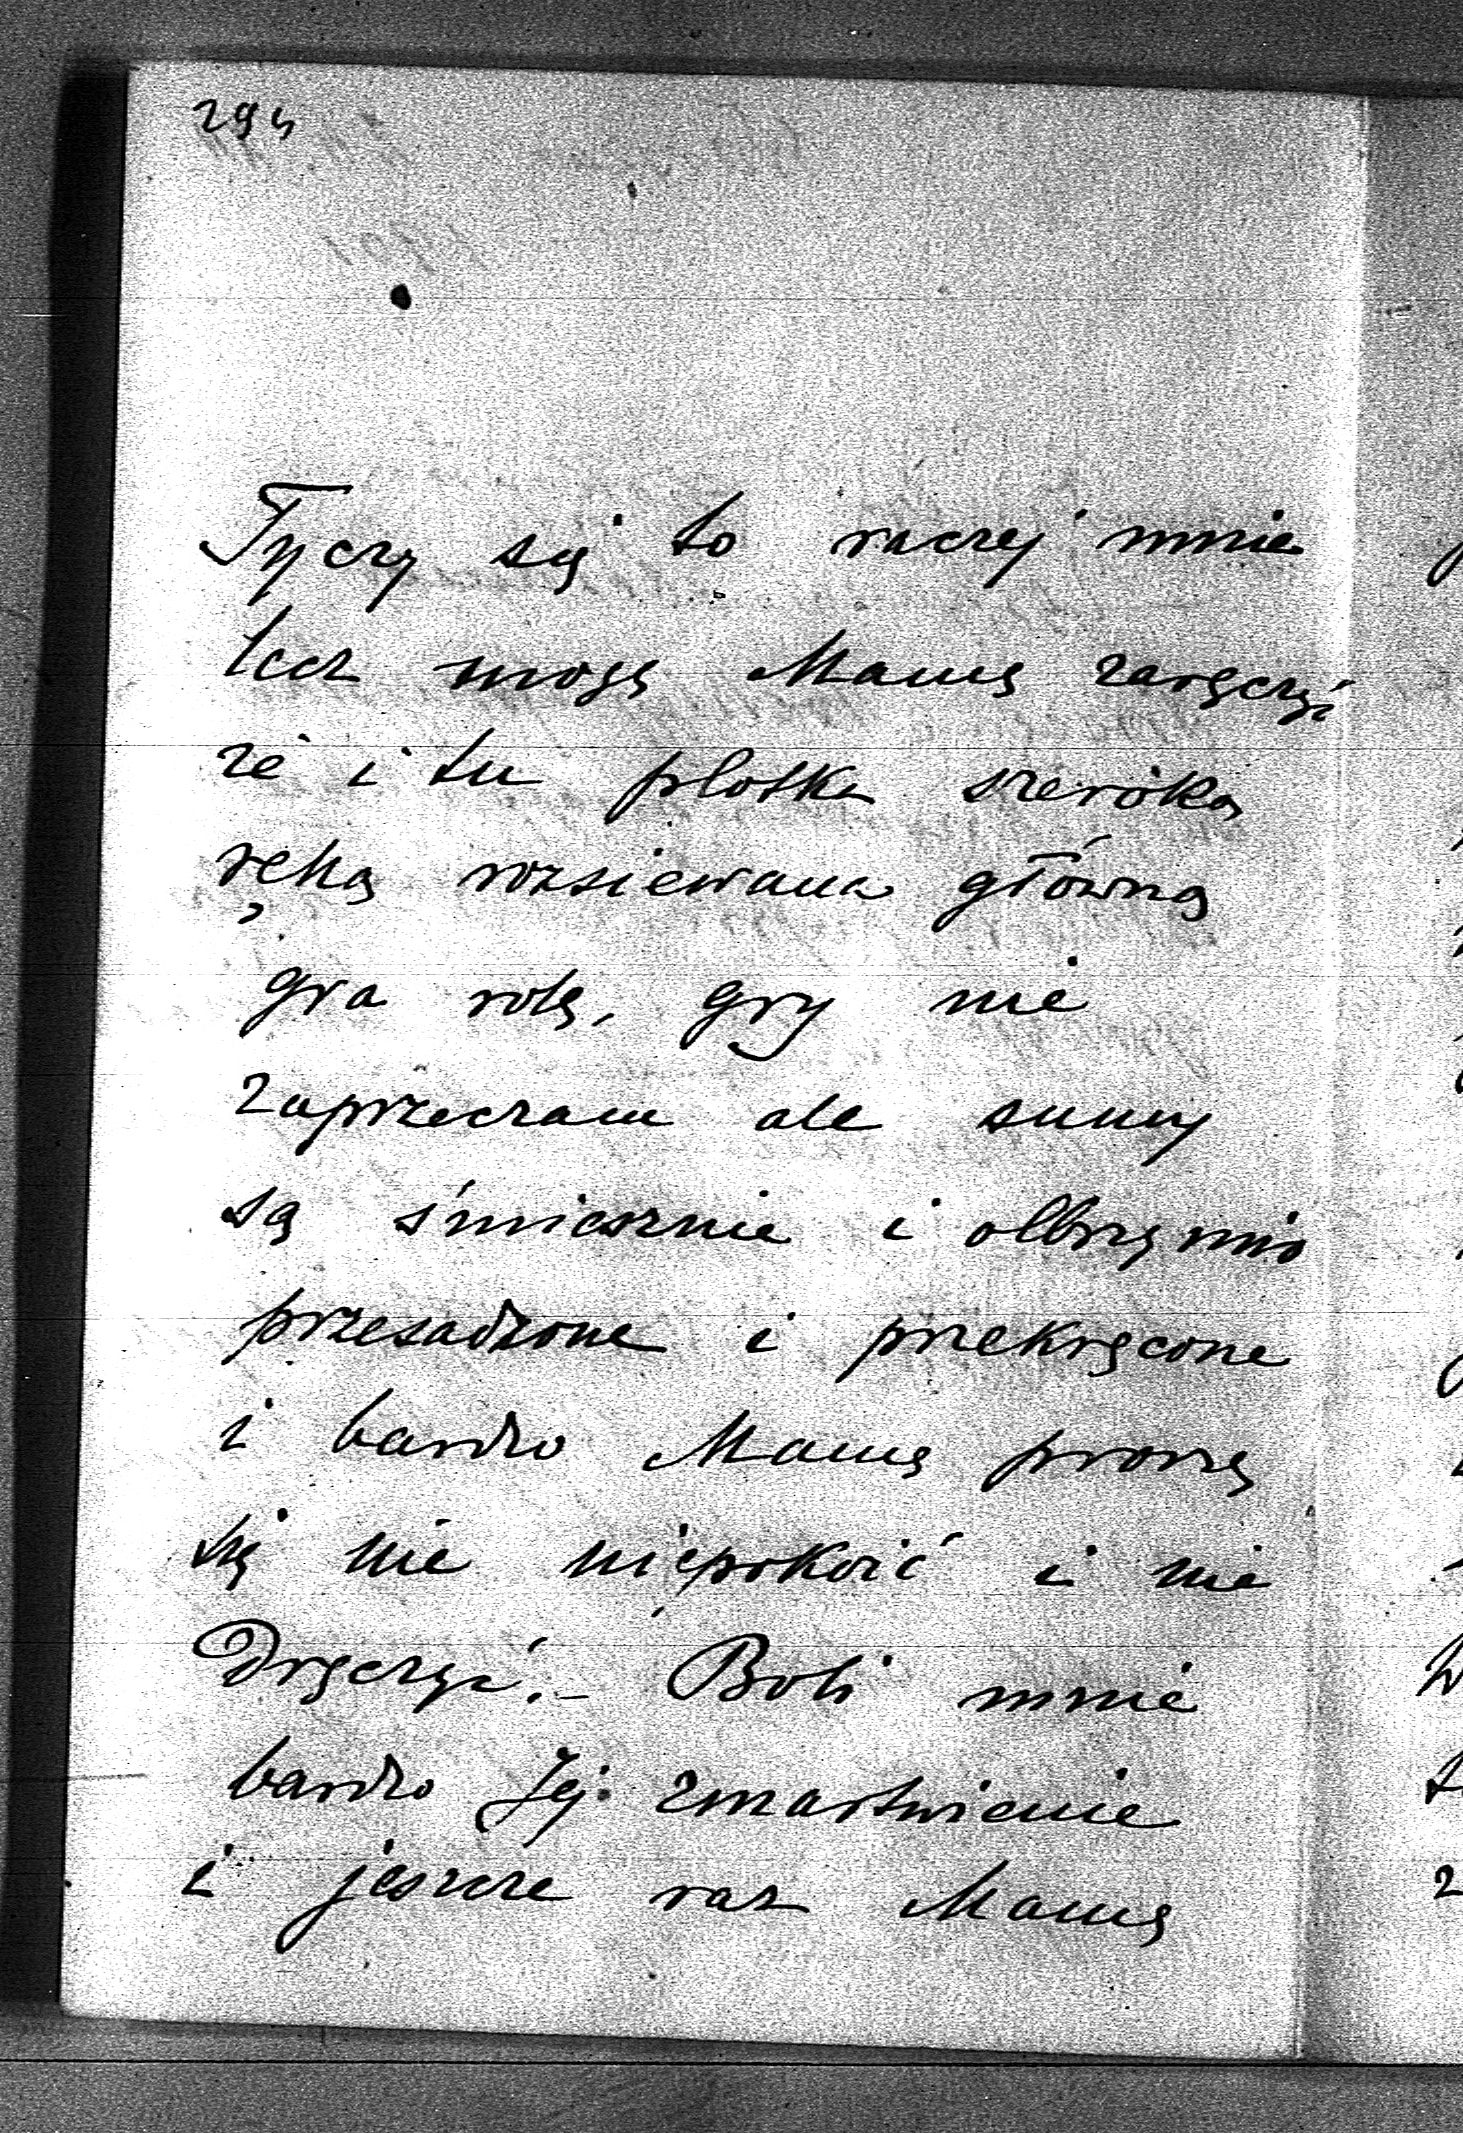 294
Tyczy się to raczej mnie
lecz mogę Mamę zaręczyć
że i tu plotka szeroką
ręką rozsiewana główną
gra rolę, gry nie
zaprzeczam ale sumy
są śmiesznie i olbrzymio
przesadzone i przekręcone
i bardzo Mamę proszę
się nie niepokoić i nie
Dręczyć. – Boli mnie
bardzo Jej zmartwienie
i jeszcze raz Mamę